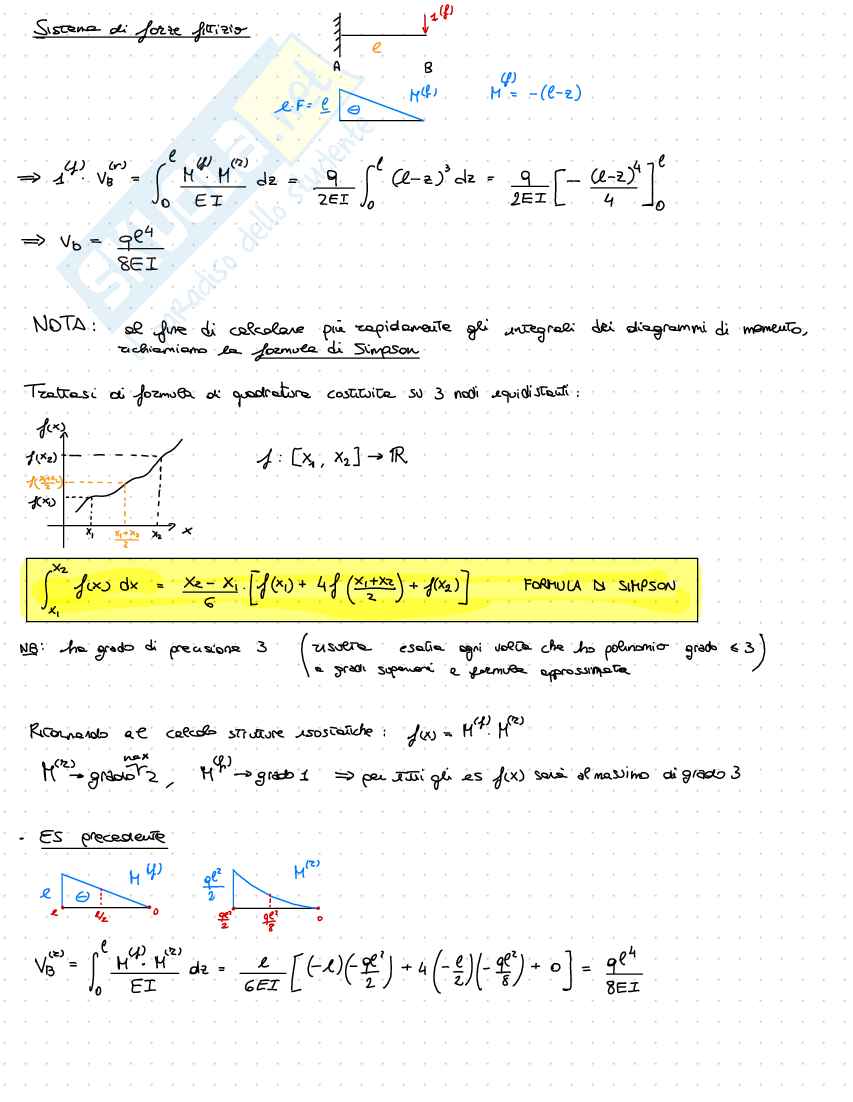 Sistema di forze fittizio
1^(f)
l
A B
l·F = l ⊖ M^(f) M^(f) = -(l-z)
⇒ 1^(f) · V_B^(r) = ∫_0^l M^(f) · M^(r) / EI dz = q/2EI ∫_0^l (l-z)^3 dz = q/2EI [ - (l-z)^4 / 4 ]_0^l
⇒ V_b = ql^4 / 8EI
SKUOLA.net
il paradiso dello studente
NOTA: al fine di calcolare più rapidamente gli integrali dei diagrammi di momento,
richiamiamo la formula di Simpson
Trattasi di formula di quadratura costituita su 3 nodi equidistanti:
f(x)
f(x_2)
f((x_1+x_2)/2)
f(x_1)
x_1 (x_1+x_2)/2 x_2 x
f : [x_1, x_2] → ℝ
∫_{x_1}^{x_2} f(x) dx = (x_2 - x_1)/6 · [ f(x_1) + 4f((x_1+x_2)/2) + f(x_2) ] FORMULA DI SIMPSON
NB: ha grado di precisione 3 (risulta esatta ogni volta che ho polinomio grado ≤ 3
a gradi superiori è formula approssimata)
Ritornando al calcolo strutture isostatiche: f(x) = M^(f) · M^(r)
M^(r) → grado max 2, M^(f) → grado 1 ⇒ per tutti gli es f(x) sarà al massimo di grado 3
- ES precedente
l ⊖ M^(f) ql^2/2 M^(r)
l l/2 0 ql^2/2 ql^2/8 0
V_B^(r) = ∫_0^l M^(f) · M^(r) / EI dz = l/6EI [ (-l)(-ql^2/2) + 4(-l/2)(-ql^2/8) + 0 ] = ql^4 / 8EI